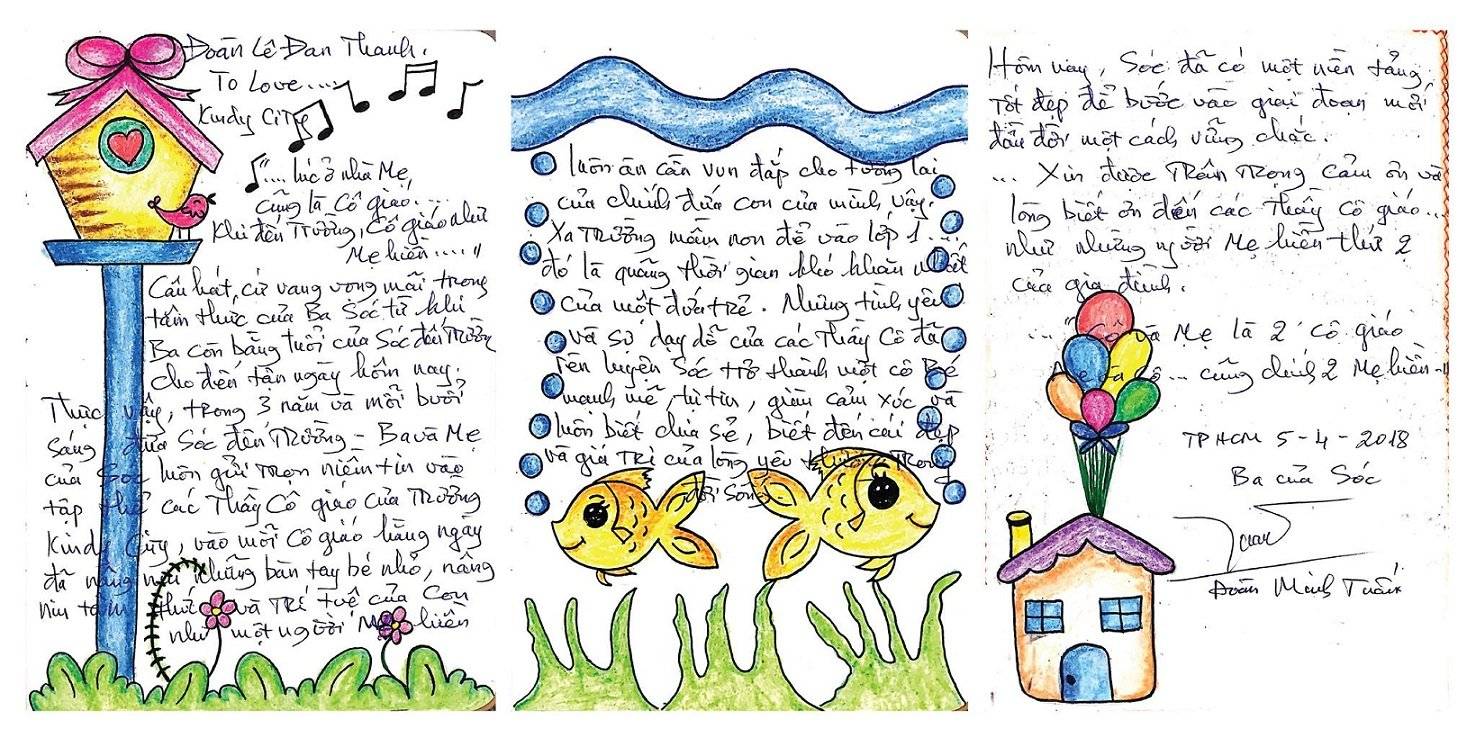 Đoàn Lê Đan Thanh.
To Love....
Kindy City
"... lúc ở nhà Mẹ
cũng là Cô giáo...
Khi đến Trường, Cô giáo như
Mẹ hiền...."
Câu hát, cứ vang vọng mãi trong
tâm thức của Ba Sóc từ khi
Ba còn bằng tuổi của Sóc đến Trường
cho đến tận ngày hôm nay.
Thực vậy, trong 3 năm và mỗi buổi
sáng đưa Sóc đến Trường - Ba và Mẹ
của Sóc luôn gửi trọn niềm tin vào
tập thể các Thầy Cô giáo của Trường
Kindy City, vào mỗi Cô giáo hằng ngày
đã nâng niu những bàn tay bé nhỏ, nâng
niu tâm thức và Trí tuệ của Con
như một người Mẹ hiền
luôn ân cần vun đắp cho tương lai
của chính đứa con của mình vậy.
Xa Trường mầm non để vào lớp 1...
đó là quãng thời gian khó khăn nhất
của một đứa trẻ. Nhưng tình yêu
và sự dạy dỗ của các Thầy Cô đã
rèn luyện Sóc trở thành một cô Bé
mạnh mẽ, tự tin, giàu cảm xúc và
luôn biết chia sẻ, biết đến cái đẹp
và giá Trị của lòng yêu thương Trong
đời sống
Hôm nay, Sóc đã có một nền tảng
tốt đẹp để bước vào giai đoạn mới
đầu đời một cách vững chắc.
... Xin được Trân Trọng Cảm ơn và
lòng biết ơn đến các Thầy Cô giáo...
như những người Mẹ hiền thứ 2
của gia đình.
..." Cô và Mẹ là 2 cô giáo
Mẹ và Cô... cũng chính 2 Mẹ hiền..."
TPHCM 5-4-2018
Ba của Sóc
Đoàn Minh Tuấn